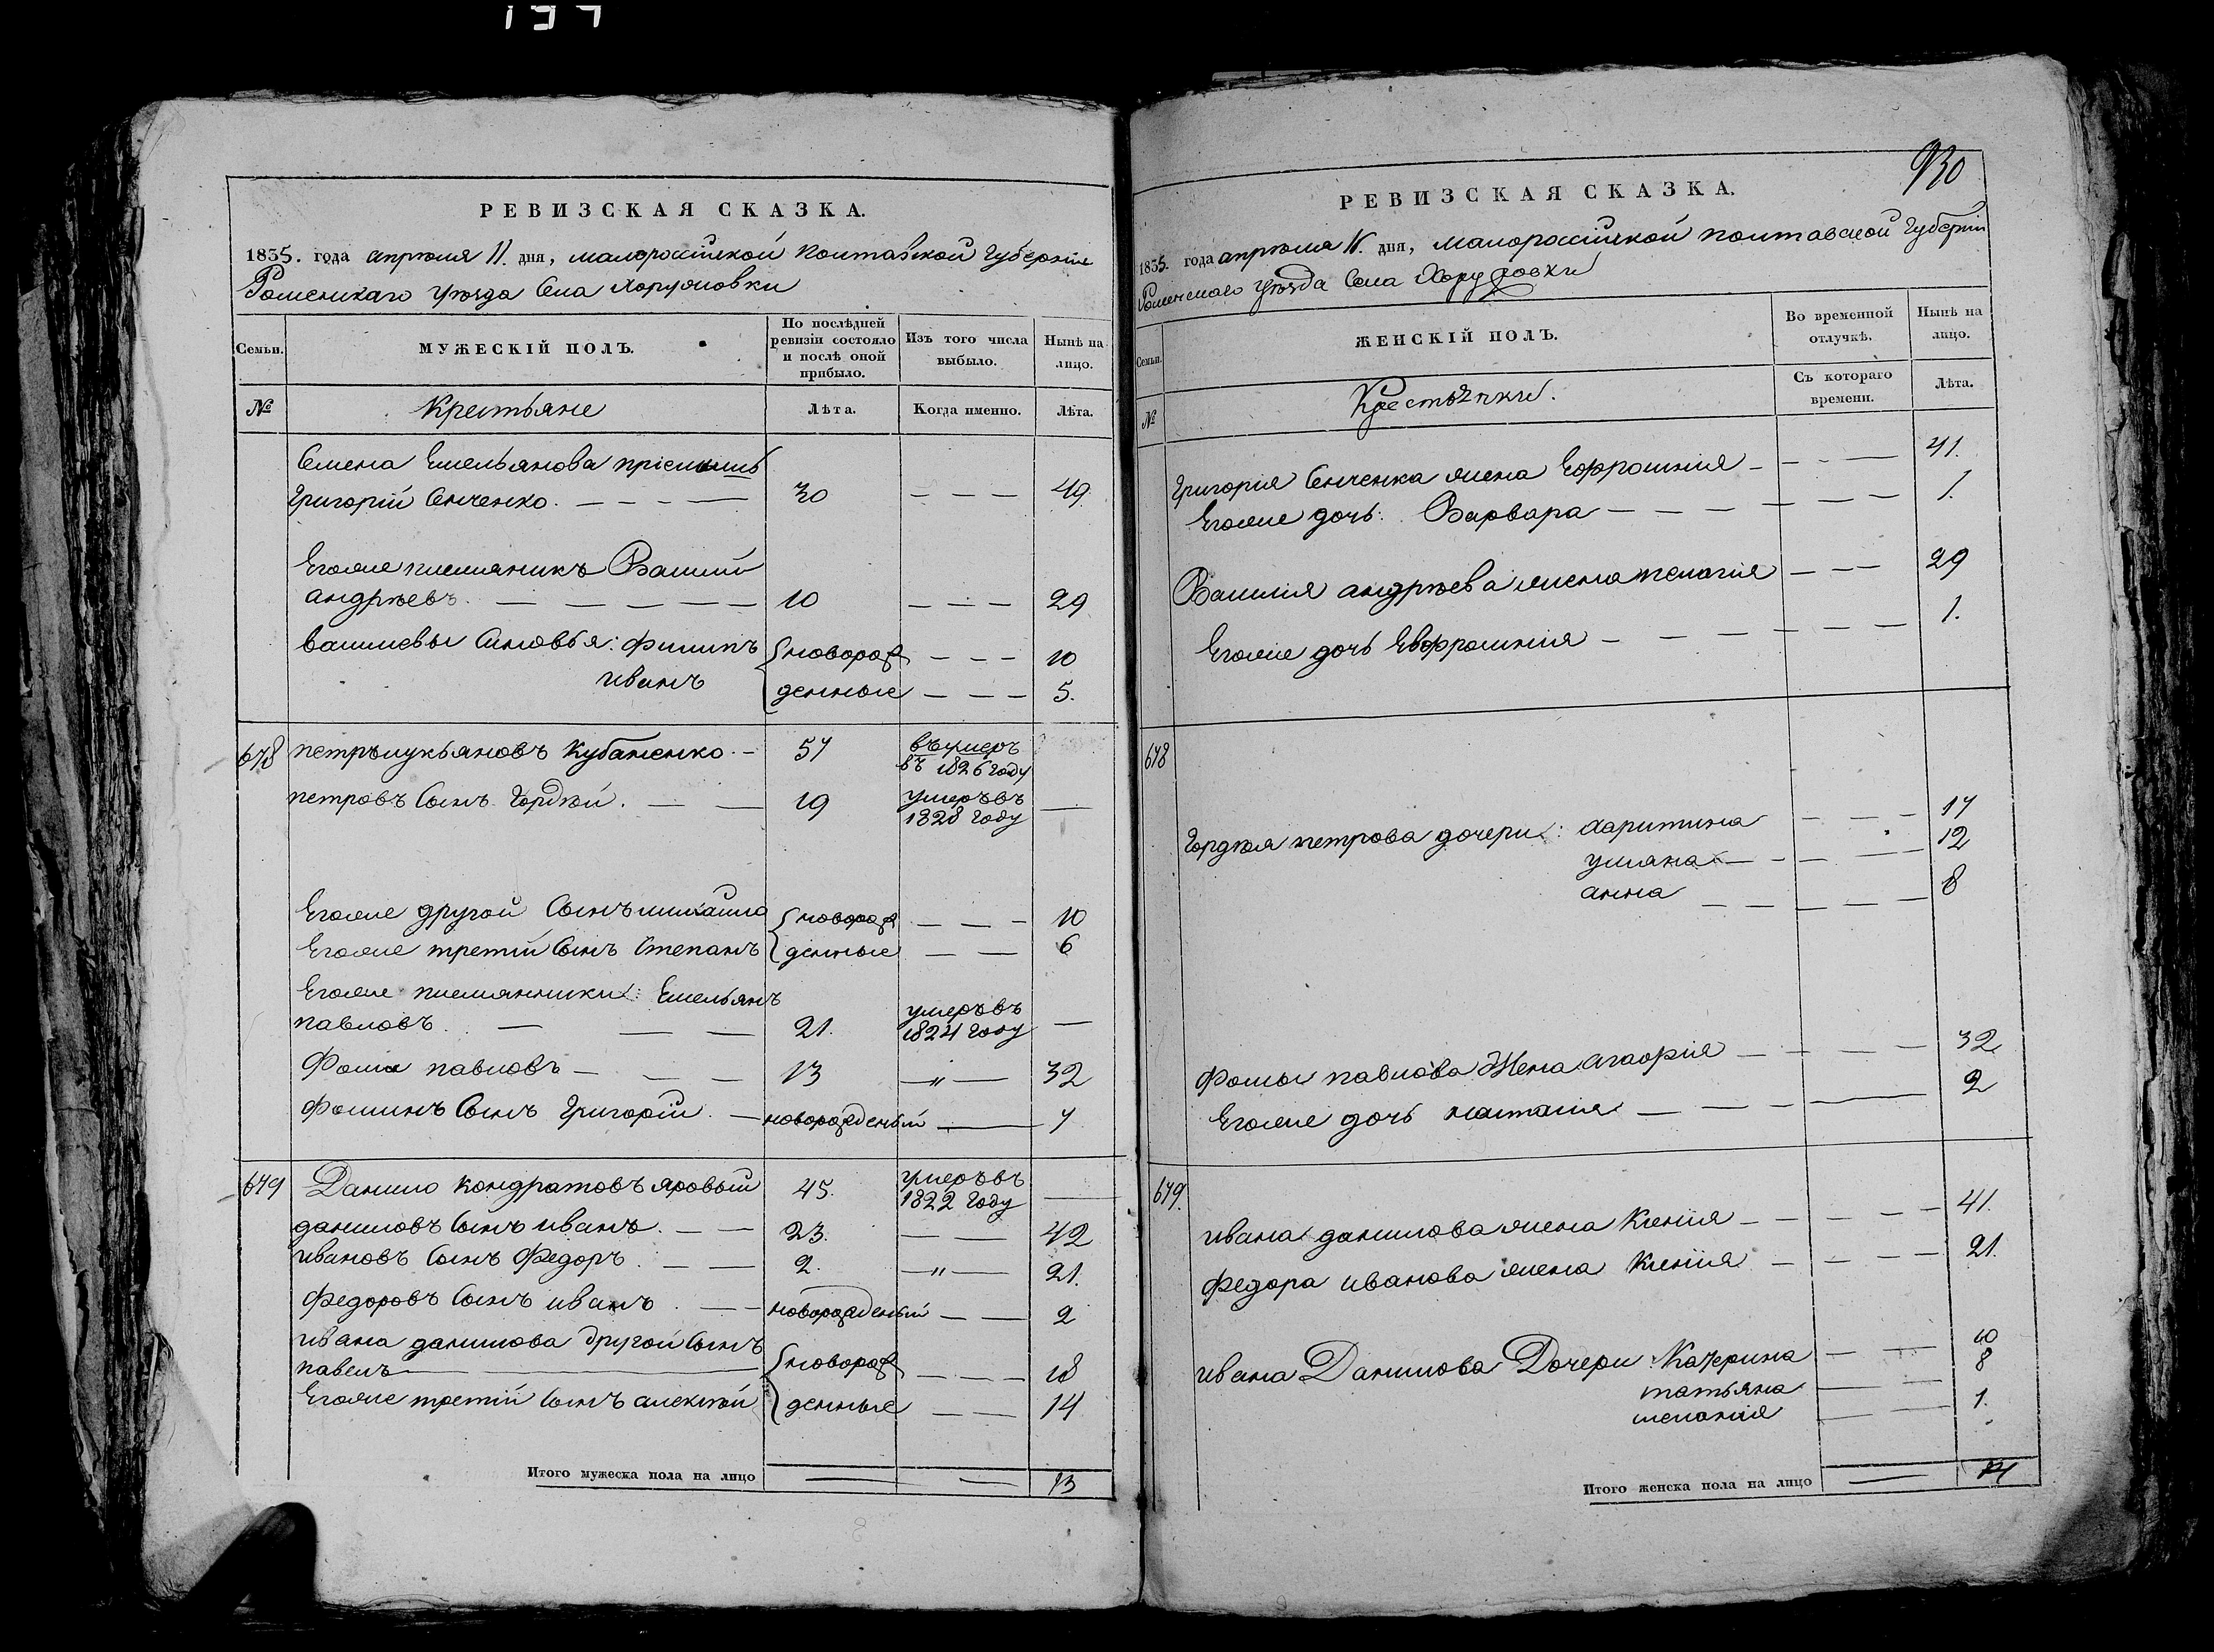 РЕВИЗСКАЯ СКАЗКА.
1835. года апрѣля 11. дня, малороссійской Полтавской Губерніи
Роменскаго уѣзда Села Хоружовки
Семьи.
МУЖЕСКІЙ ПОЛЪ.
По послѣдней ревизіи состояло и послѣ оной прибыло.
Изъ того числа выбыло.
Нынѣ на лицо.
№
Крестьяне
Лѣта.
Когда именно.
Лѣта.
Семена Емельянова пріемышъ
Григорій Сенченко. — — — — 30 — — — 49.
Егоже племяникъ Василий
андрѣевъ. — — — — — 10 — — — 29
василевы Сыновья: филипъ новорож — — — 10
иванъ денные — — — 5.
678 петръ лукьяновъ Кубаненко. — 57 умеръ
въ 1826 году
петровъ Сынъ Гордѣй. — — 19 умеръ въ —
1828 году
Егоже другой Сынъ михайло новорож — — — 10
Егоже третій Сынъ Степанъ денные — — 6
Егоже племянники: Емельянъ
павловъ. — — — 21. умеръ въ —
1824 году
Фома павловъ — — — 13 —„— 32
Фоминъ Сынъ Григорій. — новорожденый — 7
679 Данило кондратовъ яровый 45. умеръ въ —
1822 году
даниловъ Сынъ иванъ. — — 23. — — 42
ивановъ Сынъ Федоръ. — — 2. —„— 21.
Федоровъ Сынъ иванъ. — — новорожденый — — 2
ивана данилова другой Сынъ
павелъ — новорож — — — 18
Егоже третій Сынъ алексѣй денные — — 14
Итого мужеска пола на лицо — — 13
930
РЕВИЗСКАЯ СКАЗКА.
1835. года апрѣля 11. дня, малороссійской полтавской Губерніи
Роменскаго уѣзда Села Хоружовки
Семьи.
ЖЕНСКІЙ ПОЛЪ.
Во временной отлучкѣ.
Нынѣ на лицо.
№
Крестьянки.
Съ котораго времени.
Лѣта.
Григорія Сенченка жена Ефросинія — — — — 41.
Егоже дочь: Варвара — — — — — — — 1.
Василія андрѣева жена пелагія — — — 29
Егоже дочь Евфросинія — — — — — — 1.
678
Гордѣя петрова дочери: харитина — — — 17
уляна — — — — 12
анна — — — — 8
Фомы павлова Жена агафія — — — — 32.
Егоже дочь наталія — — — — — 2
679.
ивана данилова жена Ксенія — — — — — 41.
Федора иванова жена Ксенія — — — — 21.
ивана Данилова Дочери: Катерина — — 10
татьяна — — 8
меланія — — 1.
Итого женска пола на лицо — 14